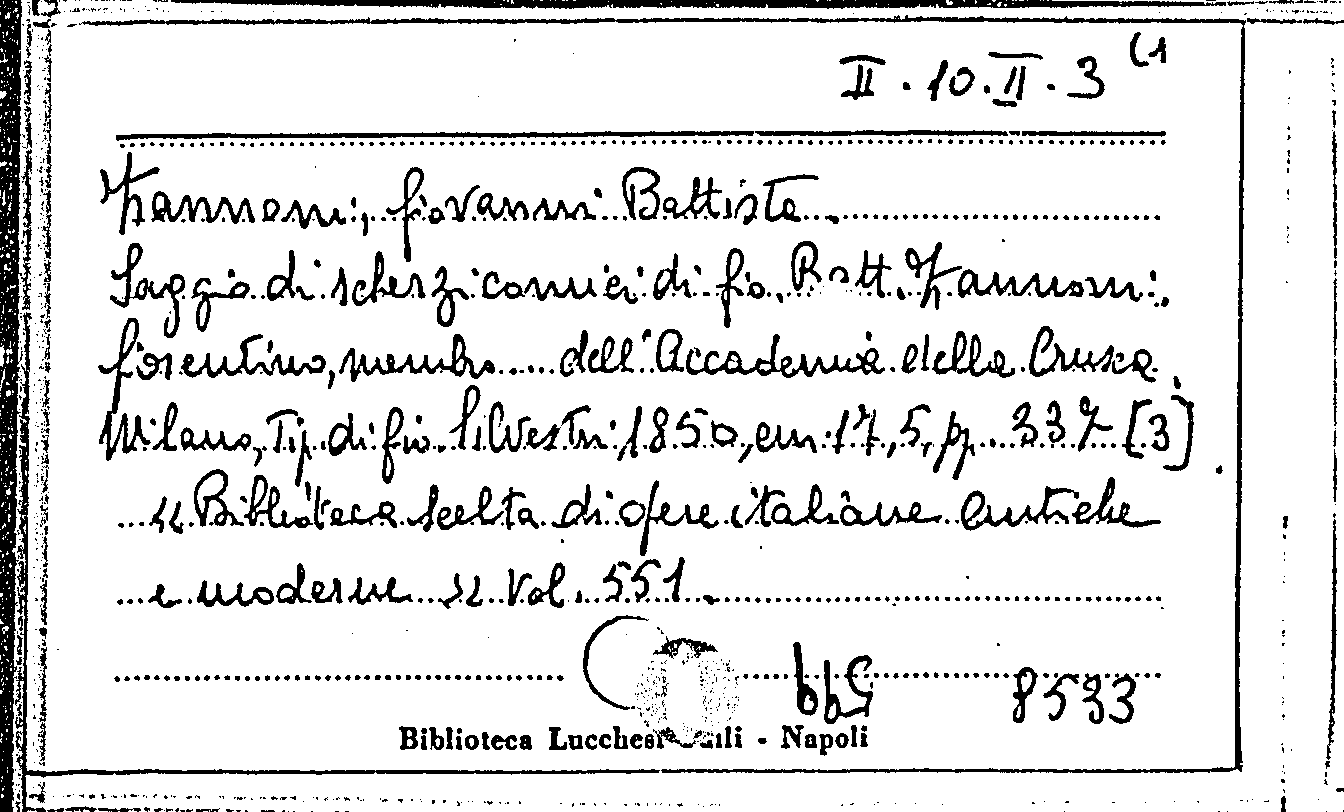 II. 10. II. 3 (1
Zannoni, Giovanni Battista.
Saggio di scherzi comici di Gio. Batt. Zannoni,
fiorentino, membro ..... dell'Accademia della Crusca.
Milano, Tip. di Gio. Silvestri 1850, cm. 17,5, pp. 337 [3].
"Biblioteca scelta di opere italiane antiche
e moderne" Vol. 551.
8533
Biblioteca Lucchesi Palli - Napoli